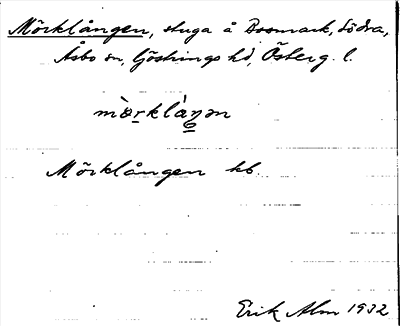 Mörklången, stuga å Bosmark, Södra,
Åsbo sn, Göstrings hd, Österg. l.
mö̀rklåŋən
Mörklången kb.
Erik Alm 1932